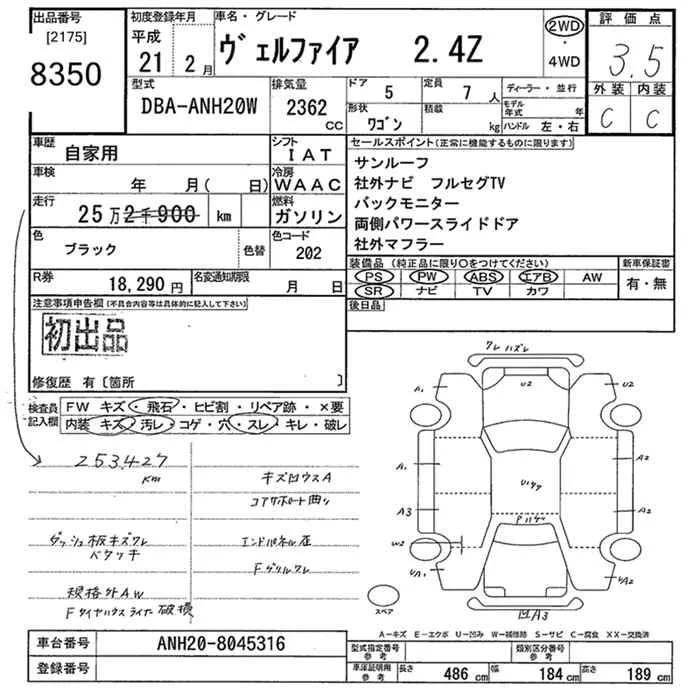 出品番号
[2175]
8350
初度登録年月
平成
21 2月
車名・グレード
ヴェルファイア 2.4Z
2WD
・
4WD
評価点
3.5
外装 内装
C C
型式
DBA-ANH20W
排気量
2362
CC
ドア
5
定員
7人
ディーラー・並行
形状
ワゴン
積載
kg
モデル年式 年
ハンドル 左・右
車歴
自家用
シフト
IAT
車検
年 月( 日)
冷房
WAAC
走行
25万2千900 km
燃料
ガソリン
色
ブラック
色替
色コード
202
R券
18,290円
名変通知期限
月 日
セールスポイント(正常に機能するものに限ります)
サンルーフ
社外ナビ フルセグTV
バックモニター
両側パワースライドドア
社外マフラー
装備品(純正品に限り○をつけてください)
PS PW ABS エアB AW
SR ナビ TV カワ
新車保証書
有・無
後日品
注意事項申告欄(不具合内容等は具体的に記入して下さい)
初出品
修復歴 有〔箇所 〕
検査員記入欄
FW キズ・飛石・ヒビ割・リペア跡・×要
内装 キズ・汚レ・コゲ・穴・スレ・キレ・破レ
253,427
KM
ダッシュ板キズワレ
ベタツキ
規格外AW
Fタイヤハウスライナー破損
キズ凹ウスA
コアサポート曲り
エンドパネル歪
Fグリルワレ
ワレ ハズレ
A1 U2 U2
A1 A2
A3 A2
W2
UA1 UA2
凹A3
スペア
A-キズ E-エクボ U-凹み W-補修跡 S-サビ C-腐食 XX-交換済
車台番号
ANH20-8045316
登録番号
型式指定番号
参考
類別区分番号
参考
車庫証明用
参考
長さ 486 cm 幅 184 cm 高さ 189 cm